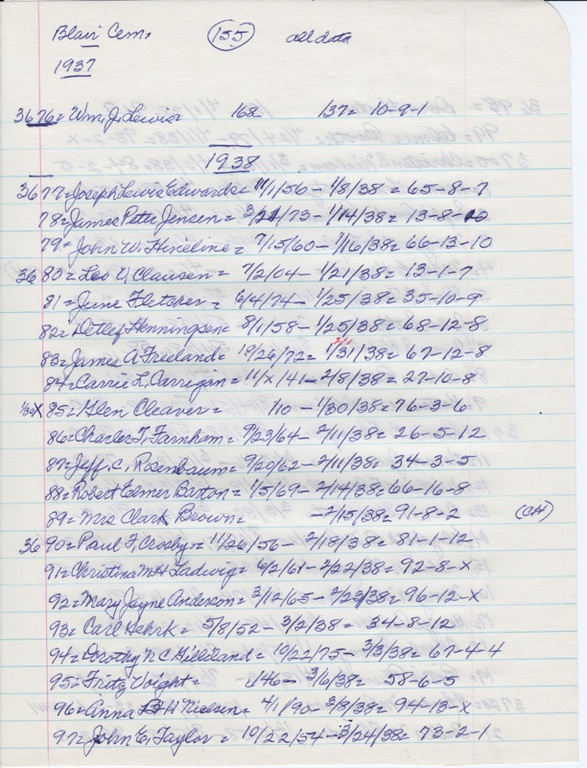 Blair Cem. 155 all data
1937
3676= Wm. J. Lewis 168 137= 10-9-1
1938
3677= Joseph Lewis Edwards= 11/1/56 - 1/8/38= 65-8-7
78= James Peter Jensen= 3/21/73 - 1/14/38= 13-8-10
79= John W. Hineline= 7/15/60 - 1/16/38= 66-13-10
3680= Leo V. Clausen= 7/2/04 - 1/21/38= 13-1-7
81= June Fletcher= 6/4/74 - 1/25/38= 35-10-9
82= Detlef Henningsen= 8/1/58 - 1/25/38= 68-12-8
83= James A. Freeland= 10/26/72= 1/31/38= 67-12-8
84= Carrie L. Carrigan= 11/x/41 - 2/8/38= 27-10-8
85= Glen Cleaver= /10 - 1/30/38= 76-3-6
86= Charles T. Farnham= 9/23/64 - 2/11/38= 26-5-12
87= Jeff. C. Rosenbaum= 9/20/62 - 2/11/38= 34-3-5
88= Robert Elmer Barton= 1/5/69 - 2/14/38= 66-16-8
89= Mrs Clark Brown= - 2/15/38= 91-8-2 (CH)
3690= Paul F. Crosby= 11/26/56 - 2/18/38= 81-1-12
91= Christina M H Ladwig= 6/2/61 - 2/22/38= 92-8-x
92= Mary Jayne Anderson= 3/12/65 - 2/23/38= 96-12-x
93= Carl Gehrk= 5/8/52 - 3/2/38= 34-8-12
94= Dorothy N C Gilliland= 10/22/75 - 3/3/38= 67-4-4
95= Fritz Voight= /46 - 3/6/38= 58-6-5
96= Anna H Nielsen= 4/1/90 - 3/8/38= 94-13-x
97= John E. Taylor= 10/22/54 - 3/24/38= 73-2-1